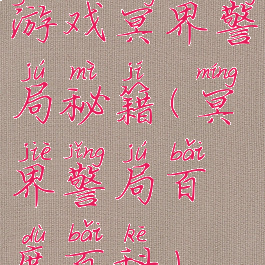 游戏冥界警
jú mì jí míng
局秘籍(冥
jiè jǐng jú bǎi
界警局百
dù bǎi kē
度百科)